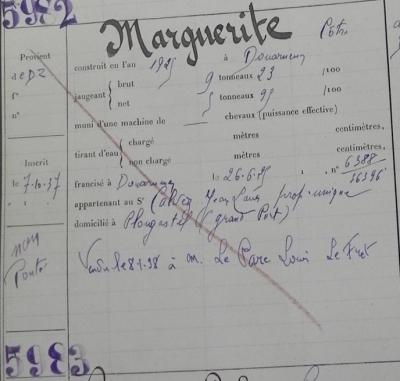 5982
Marguerite
Provient
de DZ
f°
n°
construit en l'an 1925 à Douarnenez
jaugeant { brut 9 tonneaux 23 /100
net 5 tonneaux 95 /100
muni d'une machine de — chevaux (puissance effective)
tirant d'eau { chargé mètres centimètres,
non chargé mètres centimètres,
Inscrit
le 7.10.37
francisé à Douarnenez le 26.6.25, n° 6388
appartenant au Sr Jean Louis prop. unique
domicilié à Plougastel (grand Port)
non
Ponté
Vendu le 8.1.38 à M. Le Gare Louis Le Fret
5983